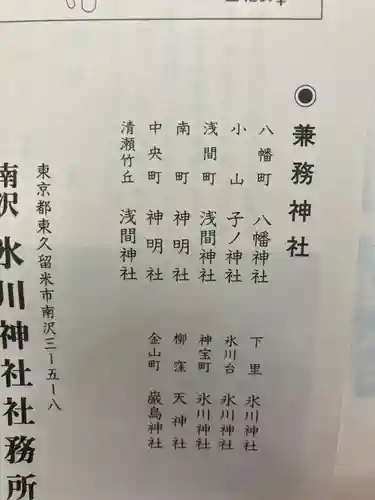 ◉兼務神社
八幡町 八幡神社
小山 子ノ神社
浅間町 浅間神社
南町 神明社
中央町 神明社
清瀬竹丘 浅間神社
下里 氷川神社
氷川台 氷川神社
神宝町 氷川神社
柳窪 天神社
金山町 巌島神社
東京都東久留米市南沢三ー五ー八
南沢氷川神社社務所